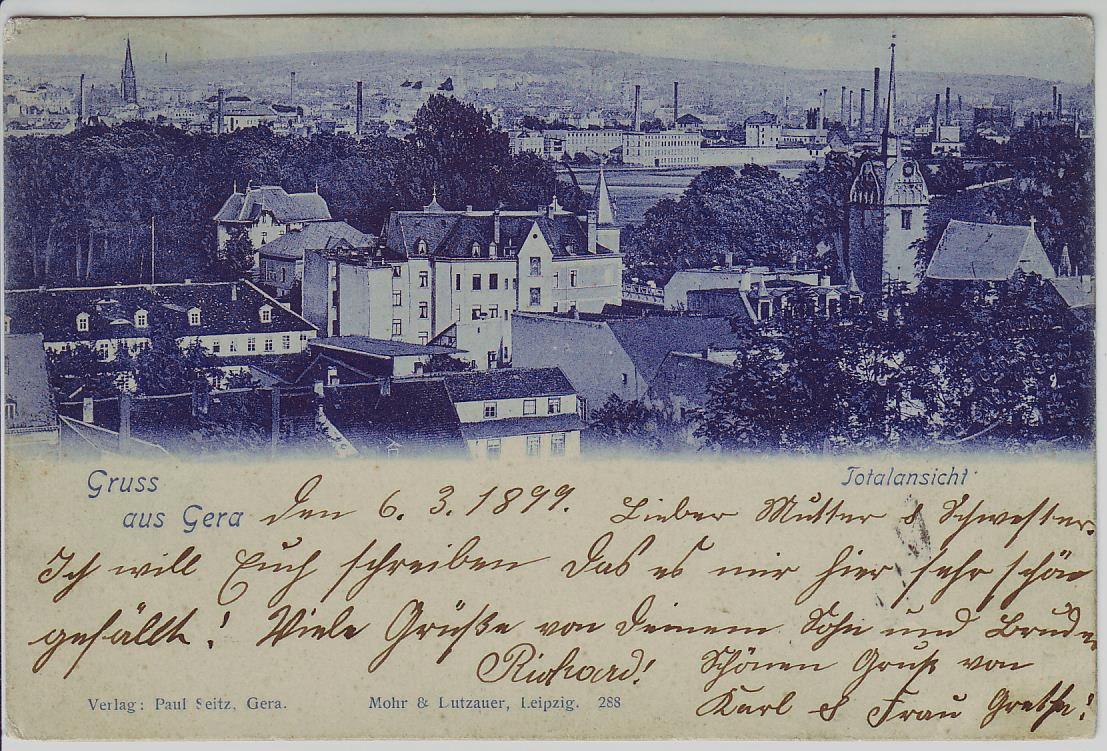 Gruss
aus Gera
Totalansicht
den 6. 3. 1899. Lieber Mutter & Schwester.
Ich will Euch schreiben das es mir hier sehr schön
gefällt! Viele Grüße von deinem Sohn und Bruder
Richard! Schönen Gruß von
Karl & Frau Grethe!
Verlag: Paul Seitz, Gera.
Mohr & Lutzauer, Leipzig. 288